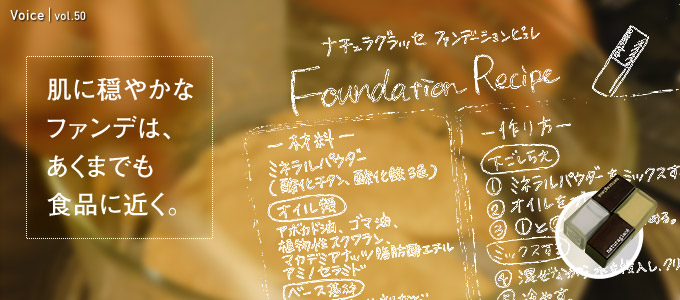 Voice | vol.50
肌に穏やかな
ファンデは、
あくまでも
食品に近く。
ナチュラグラッセ ファンデーションピュレ
Foundation Recipe
ー材料ー
ミネラルパウダー
(酸化チタン、酸化鉄3色)
オイル類
アボカド油、ゴマ油、
植物性スクワラン、
マカデミアナッツ脂肪酸エチル
アミノセラミド
ベース基材
ー作り方ー
下ごしらえ
① ミネラルパウダーをミックスす
② オイルを
③ ①と
める。
ミックスする
④ 混ぜな
入し、クリ
⑤ 冷やす
naturaglacé